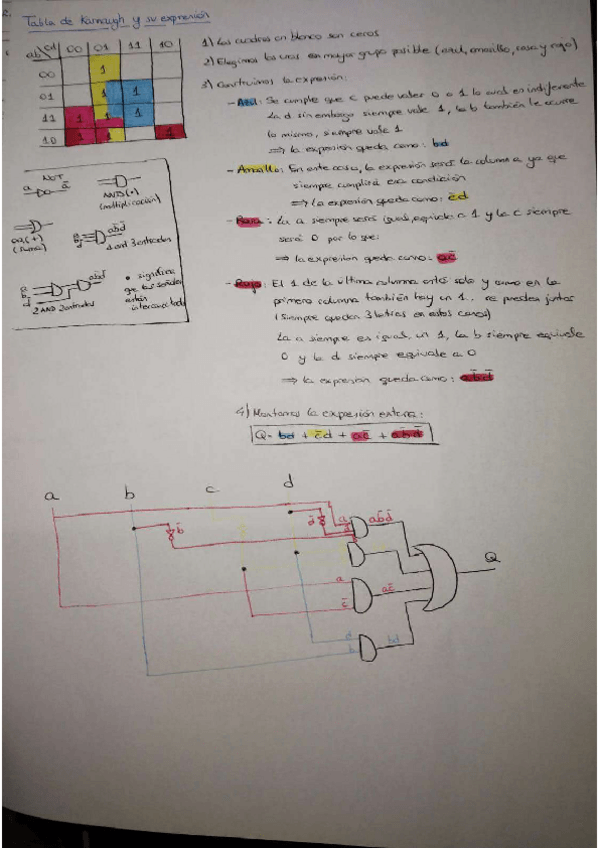 Tabla de Karnaugh y su expresión
ab\cd 00 01 11 10
00 1
01 1 1
11 1 1 1
10 1 1 1
1) Los cuadros en blanco son ceros
2) Elegimos los unos en mayor grupo posible (azul, amarillo, rosa y rojo)
3) Construimos la expresión:
- Azul: Se cumple que c puede valer 0 o 1 lo cual es indiferente
La d sin embargo siempre vale 1, la b también le ocurre
lo mismo, siempre vale 1
⇒ la expresión queda como: bd
- Amarillo: En este caso, la expresión será la columna ya que
siempre cumplirá esa condición
⇒ La expresión queda como: c̄d
- Rosa: La a siempre será igual, equivale a 1 y la c siempre
será 0 por lo que:
⇒ la expresión queda como: ac̄
- Rojo: El 1 de la última columna está solo y como en la
primera columna también hay un 1.. se pueden juntar
(siempre quedan 3 letras en estos casos)
La a siempre es igual, un 1, la b siempre equivale
0 y la d siempre equivale a 0
⇒ la expresión queda como: ab̄d̄
NOT
a ā
AND (·)
(multiplicación)
OR (+)
(suma)
a
b̄
d̄
ab̄d̄
1 and 3 entradas
a
b̄
d̄
ab̄d̄
2 AND 2 entradas
• significa
que las señales
están
interconectadas
4) Montamos la expresión entera:
Q = bd + c̄d + ac̄ + ab̄d̄
a b c d
b̄ d̄ a ab̄d̄
Q
a
c̄ ac̄
d
b bd